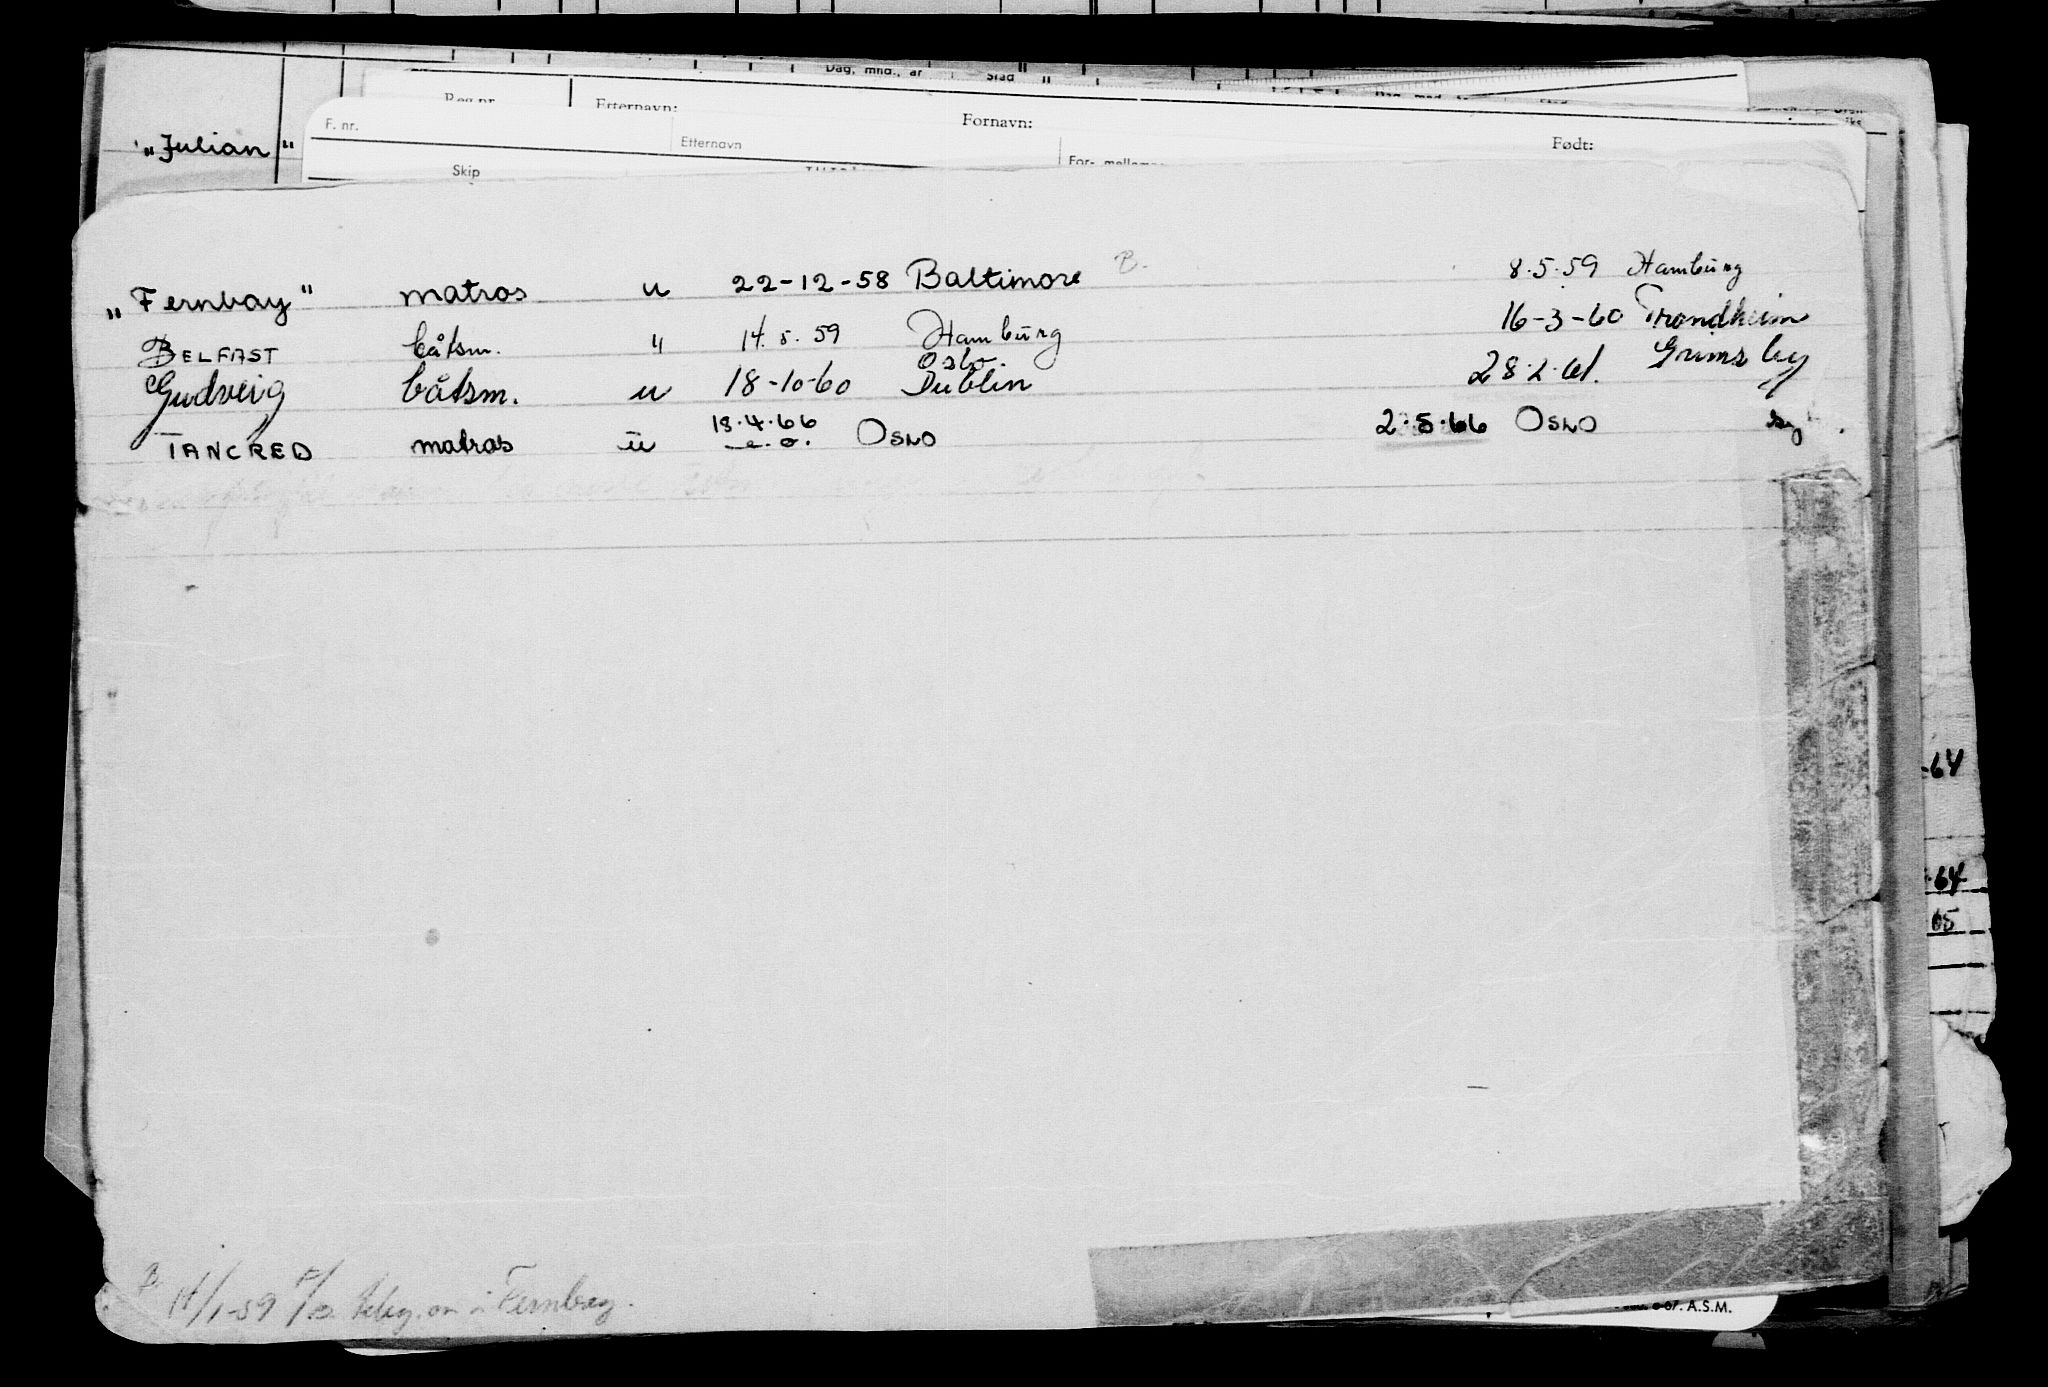 Dag, mnd., år Stad
Reg.nr. Etternavn: Fornavn: Født:
F. nr. Etternavn For- mellomn
„Julian"
Skip
„Fernbay" matros u 22-12-58 Baltimore B. 8.5.59 Hamburg
BELFAST båtsm. " 14.5.59 Hamburg 16-3-60 Trondheim
Oslo.
Gudveig båtsm. u 18-10-60 Dublin 28.2.61. Grimsby
TANCRED matros u 18.4.66 e.o. OSLO 2.5.66 OSLO syk.
-64
-64
65
B 14/1-59 om Fernbay.
A.S.M.